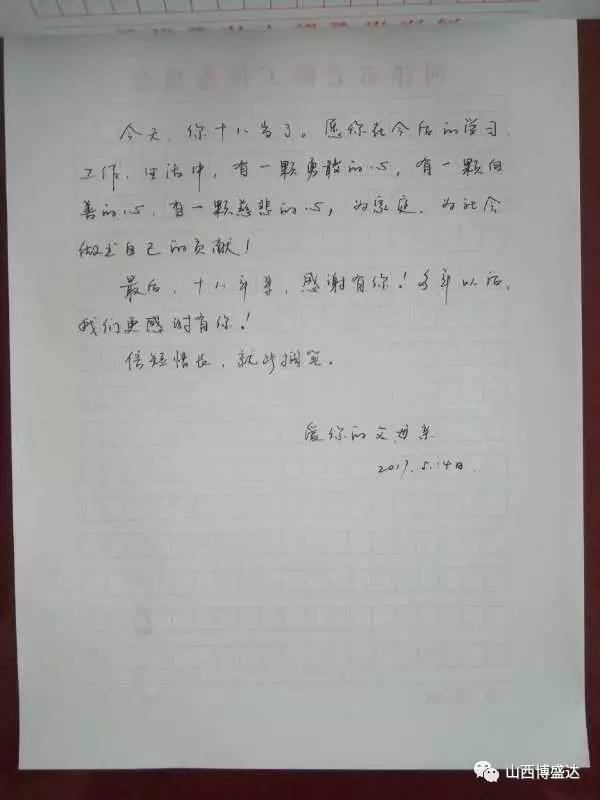 今天,你十八岁了。愿你在今后的学习、
工作、生活中,有一颗勇敢的心,有一颗向
善的心,有一颗慈悲的心,为家庭、为社会
做出自己的贡献!
最后,十八年来,感谢有你!多年以后,
我们更感谢有你!
信短情长,就此搁笔。
爱你的父母亲
2017.5.14日.
山西博盛达